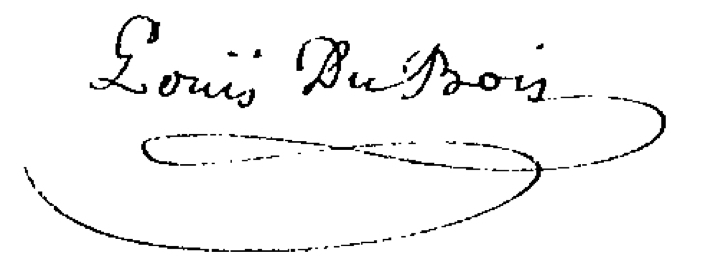 Louïs DuBois